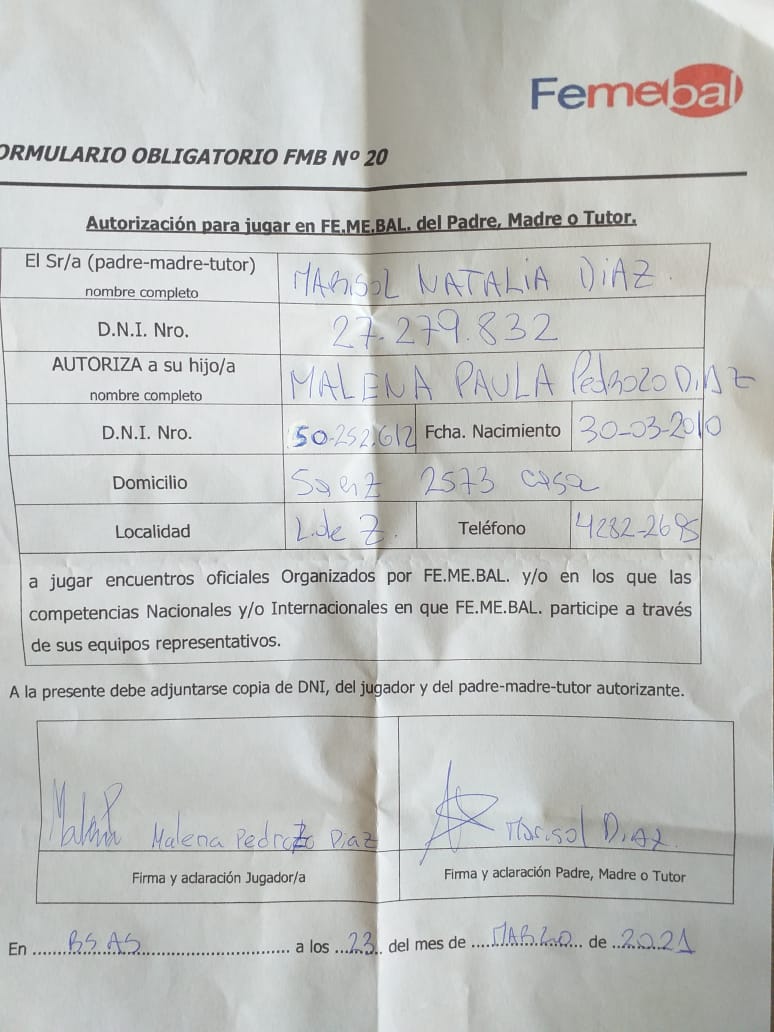 Femebal
ORMULARIO OBLIGATORIO FMB Nº 20
Autorización para jugar en FE.ME.BAL. del Padre, Madre o Tutor.
El Sr/a (padre-madre-tutor) MARISOL NATALIA DIAZ.
nombre completo
D.N.I. Nro. 27.279.832
AUTORIZA a su hijo/a MALENA PAULA PedROZO DIAZ
nombre completo
D.N.I. Nro. 50.252.612 Fcha. Nacimiento 30-03-2010
Domicilio Saenz 2573 casa
Localidad L. de Z. Teléfono 4282-2695
a jugar encuentros oficiales Organizados por FE.ME.BAL. y/o en los que las
competencias Nacionales y/o Internacionales en que FE.ME.BAL. participe a través
de sus equipos representativos.
A la presente debe adjuntarse copia de DNI, del jugador y del padre-madre-tutor autorizante.
Malena Pedrozo Diaz Marisol DiAZ.
Firma y aclaración Jugador/a Firma y aclaración Padre, Madre o Tutor
En BS AS a los 23 del mes de MARZO de 2021